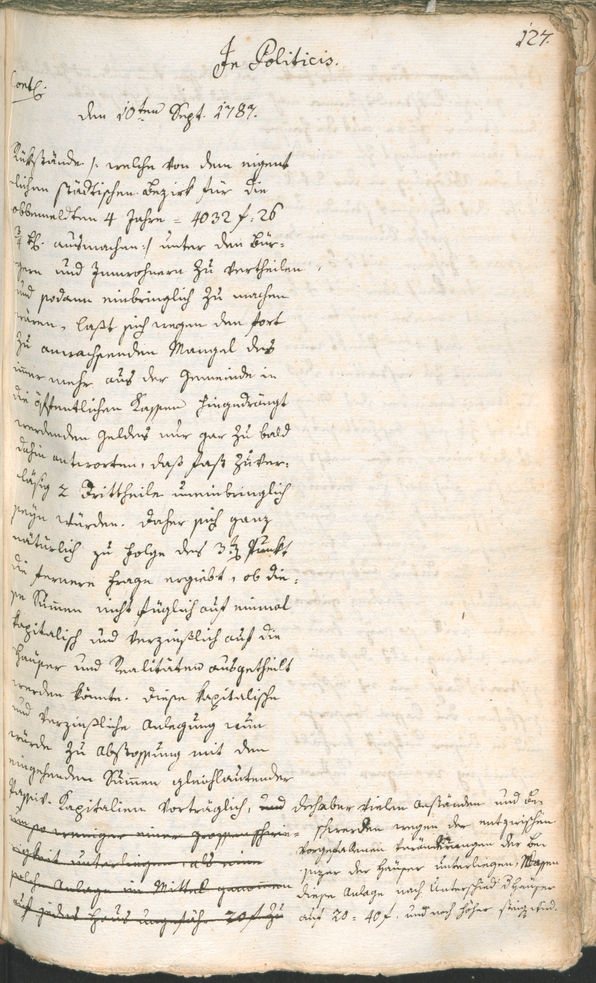 127.
In Politicis.
Conth:
den 10ten Sept. 1787.
Rükstände /: welche von dem eigent
lichen städtischen Bezirk für die
obbemeldten 4 Jahre = 4032 f: 26
3/4 ausmachen :/ unter den Bür=
gern und Innwohnern zu vertheilen,
und sodann einbringlich zu machen
wären, laßt sich wegen den fort
zu anwachsenden Mangel des
immer mehr aus der Gemeinde in
die öffentlichen Kassen hingedrängt
werdenden Geldes nur gar zu bald
dahin antworten, daß fast zuver=
läßig 2 Drittheile uneinbringlich
seyn würden. Daher sich ganz
natürlich zu Folge des 3 Punkts
die fernere Frage ergiebt, ob die=
se Summen nicht füglich auf einmal
kapitalisch und verzinßlich auf die
Häuser und Realitäten ausgetheilt
werden könnte. Diese kapitalische
und verzinßliche Anlegung nun
würde zu Abstossung mit den
eingehenden Summen gleichlautender
Passiv-Kapitalien vorträglich, und
um so weniger einer
unterliegen, als eine
solche Anlage im Mittel genommen
auf jedes Haus ungefähr 20 f zu
doch aber vielen Anständen und Be
schwerden wegen der entzwischen
vorgefallenen Veränderungen der Be
sizer der Häuser unterliegen, Wegen
diese Anlage nach Unterschied d Häuser
auf 20 = 40 f. und noch höher steigend.